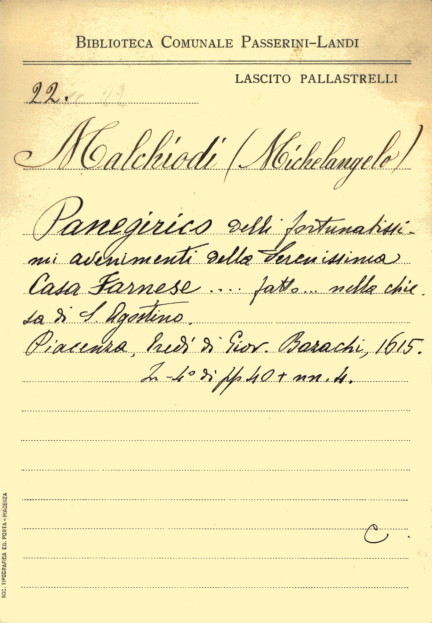 BIBLIOTECA COMUNALE PASSERINI-LANDI
LASCITO PALLASTRELLI
22.
Malchiodi (Michelangelo)
Panegirico delli fortunatissi-
mi avenimenti della Serenissima
Casa Farnese .... fatto... nella chie-
sa di S. Agostino.
Piacenza, Eredi di Giov. Bazachi, 1615.
In-4° di pp 40 + nn. 4.
C.
SOC. TIPOGRAFICA ED. PORTA - PIACENZA